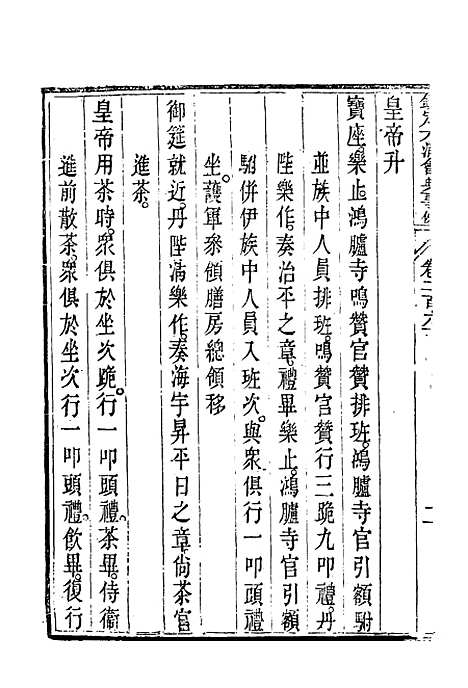 欽定大清會典事例 卷二百六 二
皇帝升
寶座。樂止。鴻臚寺鳴贊官贊排班。鴻臚寺官引額駙
並族中人員排班。鳴贊官贊行三跪九叩禮。丹
陛樂作。奏治平之章。禮畢樂止。鴻臚寺官引額
駙併伊族中人員入班次。與衆俱行一叩頭禮
坐。護軍參領膳房總領移
御筵就近。丹陛淸樂作。奏海宇昇平日之章。尙茶官
進茶。
皇帝用茶時。衆俱於坐次跪。行一叩頭禮。茶畢。侍衞
進前散茶。衆俱於坐次行一叩頭禮。飮畢。復行